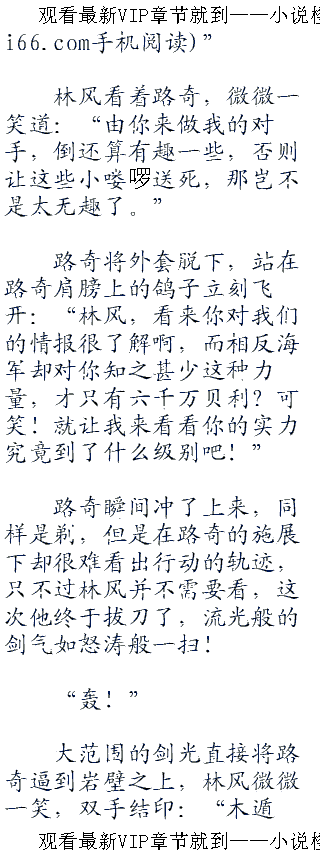 观看最新VIP章节就到——小说楼
i66.com手机阅读)”
林风看着路奇，微微一
笑道：“由你来做我的对
手，倒还算有趣一些，否则
让这些小喽啰送死，那岂不
是太无趣了。”
路奇将外套脱下，站在
路奇肩膀上的鸽子立刻飞
开：“林风，看来你对我们
的情报很了解啊，而相反海
军却对你知之甚少这种力
量，才只有六千万贝利？可
笑！就让我来看看你的实力
究竟到了什么级别吧！”
路奇瞬间冲了上来，同
样是剃，但是在路奇的施展
下却很难看出行动的轨迹，
只不过林风并不需要看，这
次他终于拔刀了，流光般的
剑气如怒涛般一扫！
“轰！”
大范围的剑光直接将路
奇逼到岩壁之上，林风微微
一笑，双手结印：“木遁
观看最新VIP章节就到——小说